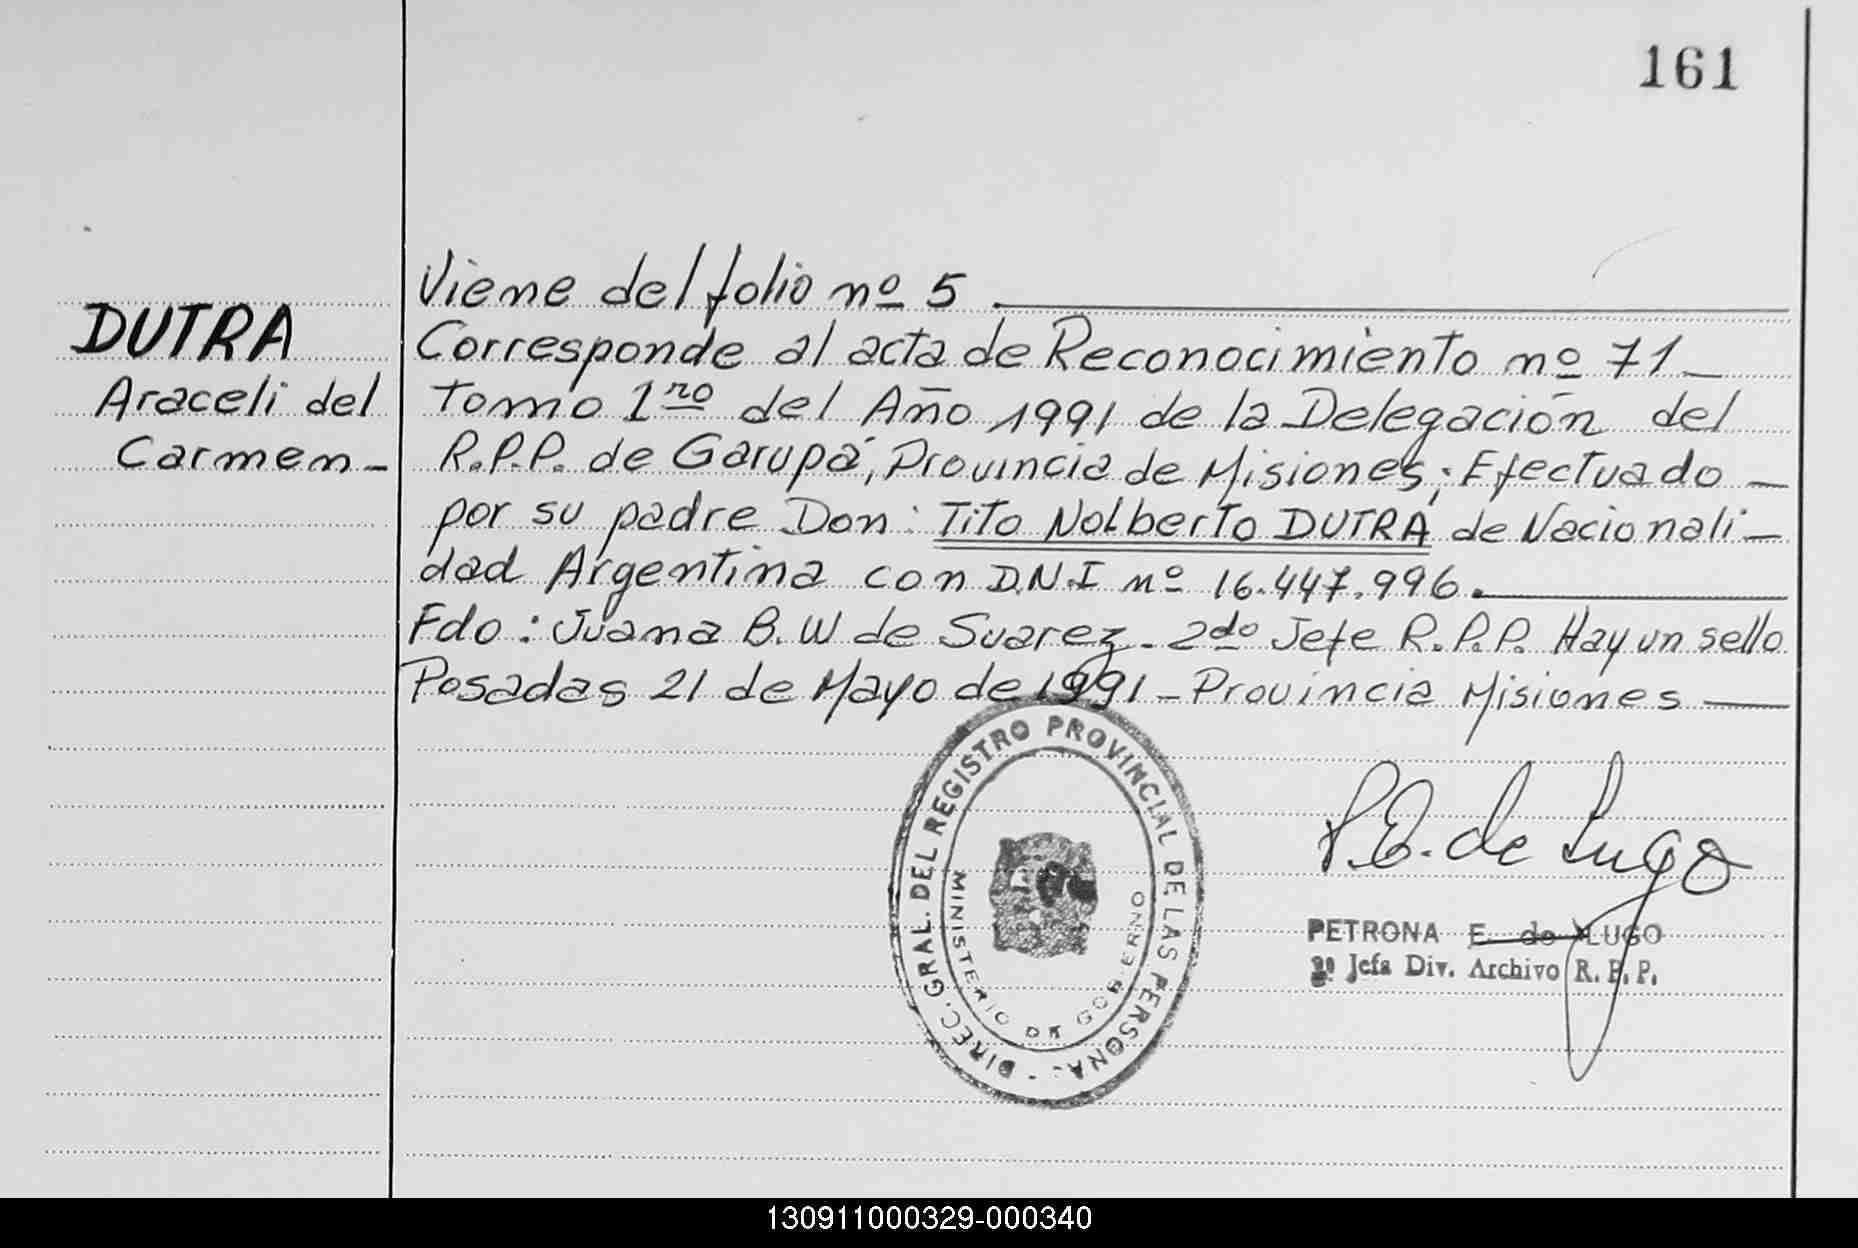 161
DUTRA
Araceli del
Carmen_
Viene del folio nº 5
Corresponde al acta de Reconocimiento nº 71_
Tomo 1ro del Año 1991 de la Delegación del
R.P.P. de Garupá, Provincia de Misiones; Efectuado _
por su padre Don: Tito Nolberto DUTRA de Nacionali_
dad Argentina con D.N.I nº 16.447.996.
Fdo: Juana B. W de Suarez_ 2do Jefe R.P.P. Hay un sello
Posadas 21 de Mayo de 1991_ Provincia Misiones
DIREC. GRAL. DEL REGISTRO PROVINCIAL DE LAS PERSONA.
MINISTERIO DE GOBIERNO
P.E. de Lugo
PETRONA E. de LUGO
Jefa Div. Archivo R. P. P.
130911000329-000340